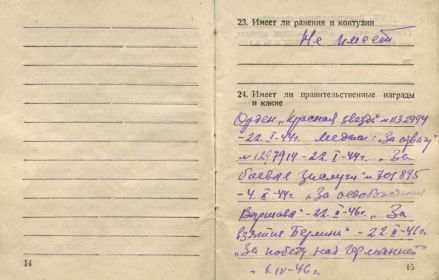 14
23. Имеет ли ранения и контузии
Не имеет
24. Имеет ли правительственные награды
и какие
Орден „Красная звезда" №1132994
-22. I-44г. Медали: „За отвагу"
№1297914-22.I-44г. „За
боевые заслуги" №701895
-4. -44г. „За освобождение
Варшавы"-22. -46г. „За
взятие Берлина"-22. -46г.
„За победу над Германией"
- 6.IV-46г.
15